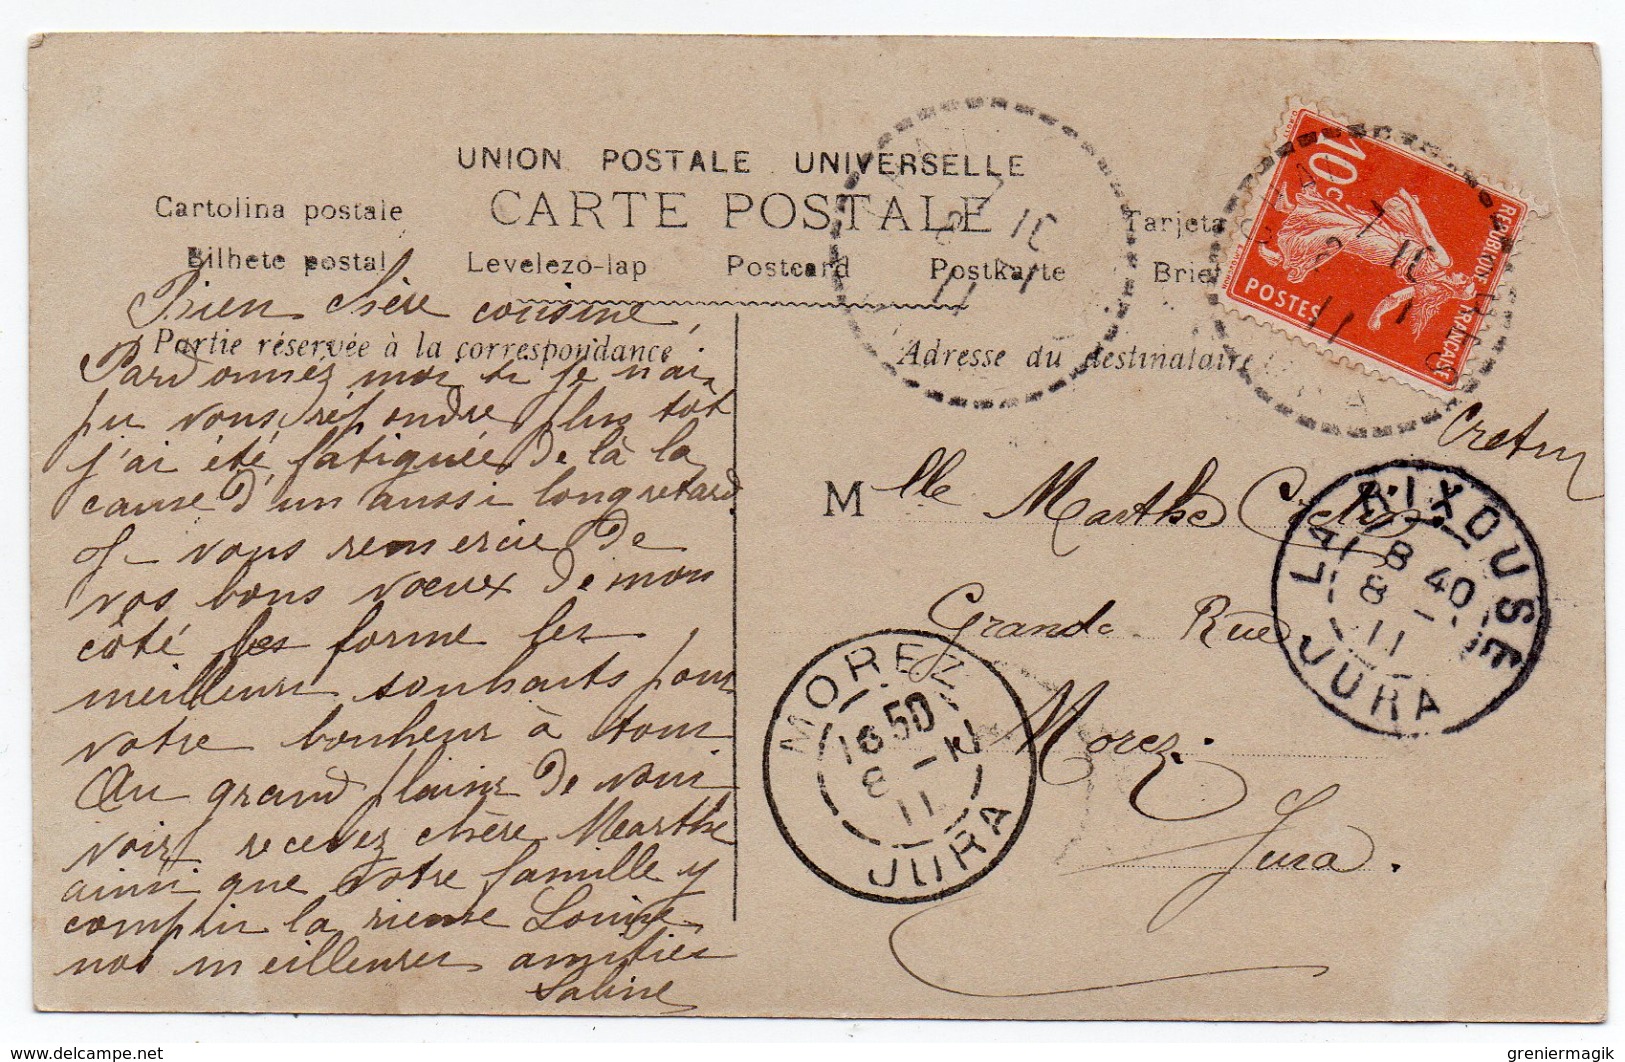 UNION POSTALE UNIVERSELLE
CARTE POSTALE
Cartolina postale
Tarjeta
Bilhete postal
Levelezö-lap
Postcard
Postkarte
Brief
Partie réservée à la correspondance
Adresse du destinataire
Bien chère cousine,
Pardonnez moi si je n'ai
pu vous répondre plus tôt
j'ai été fatiguée de là la
cause d'un aussi long retard
Je vous remercie de
vos bons voeux de mon
côté je forme les
meilleurs souhaits pour
votre bonheur à tous
Au grand plaisir de vous
voir recevez chère Marthe
ainsi que votre famille y
compris la rieuse Louise
nos meilleures amitiés
Sabine
10c
POSTES
REPUBLIQUE FRANÇAISE
7 11
Cretin
Mlle Marthe Cretin
Grande Rue
Morez.
Jura.
LA RIXOUSE
8 40
8 - 1
11
JURA
MOREZ
16 50
8 - 1
11
JURA
delcampe.net
greniermagik